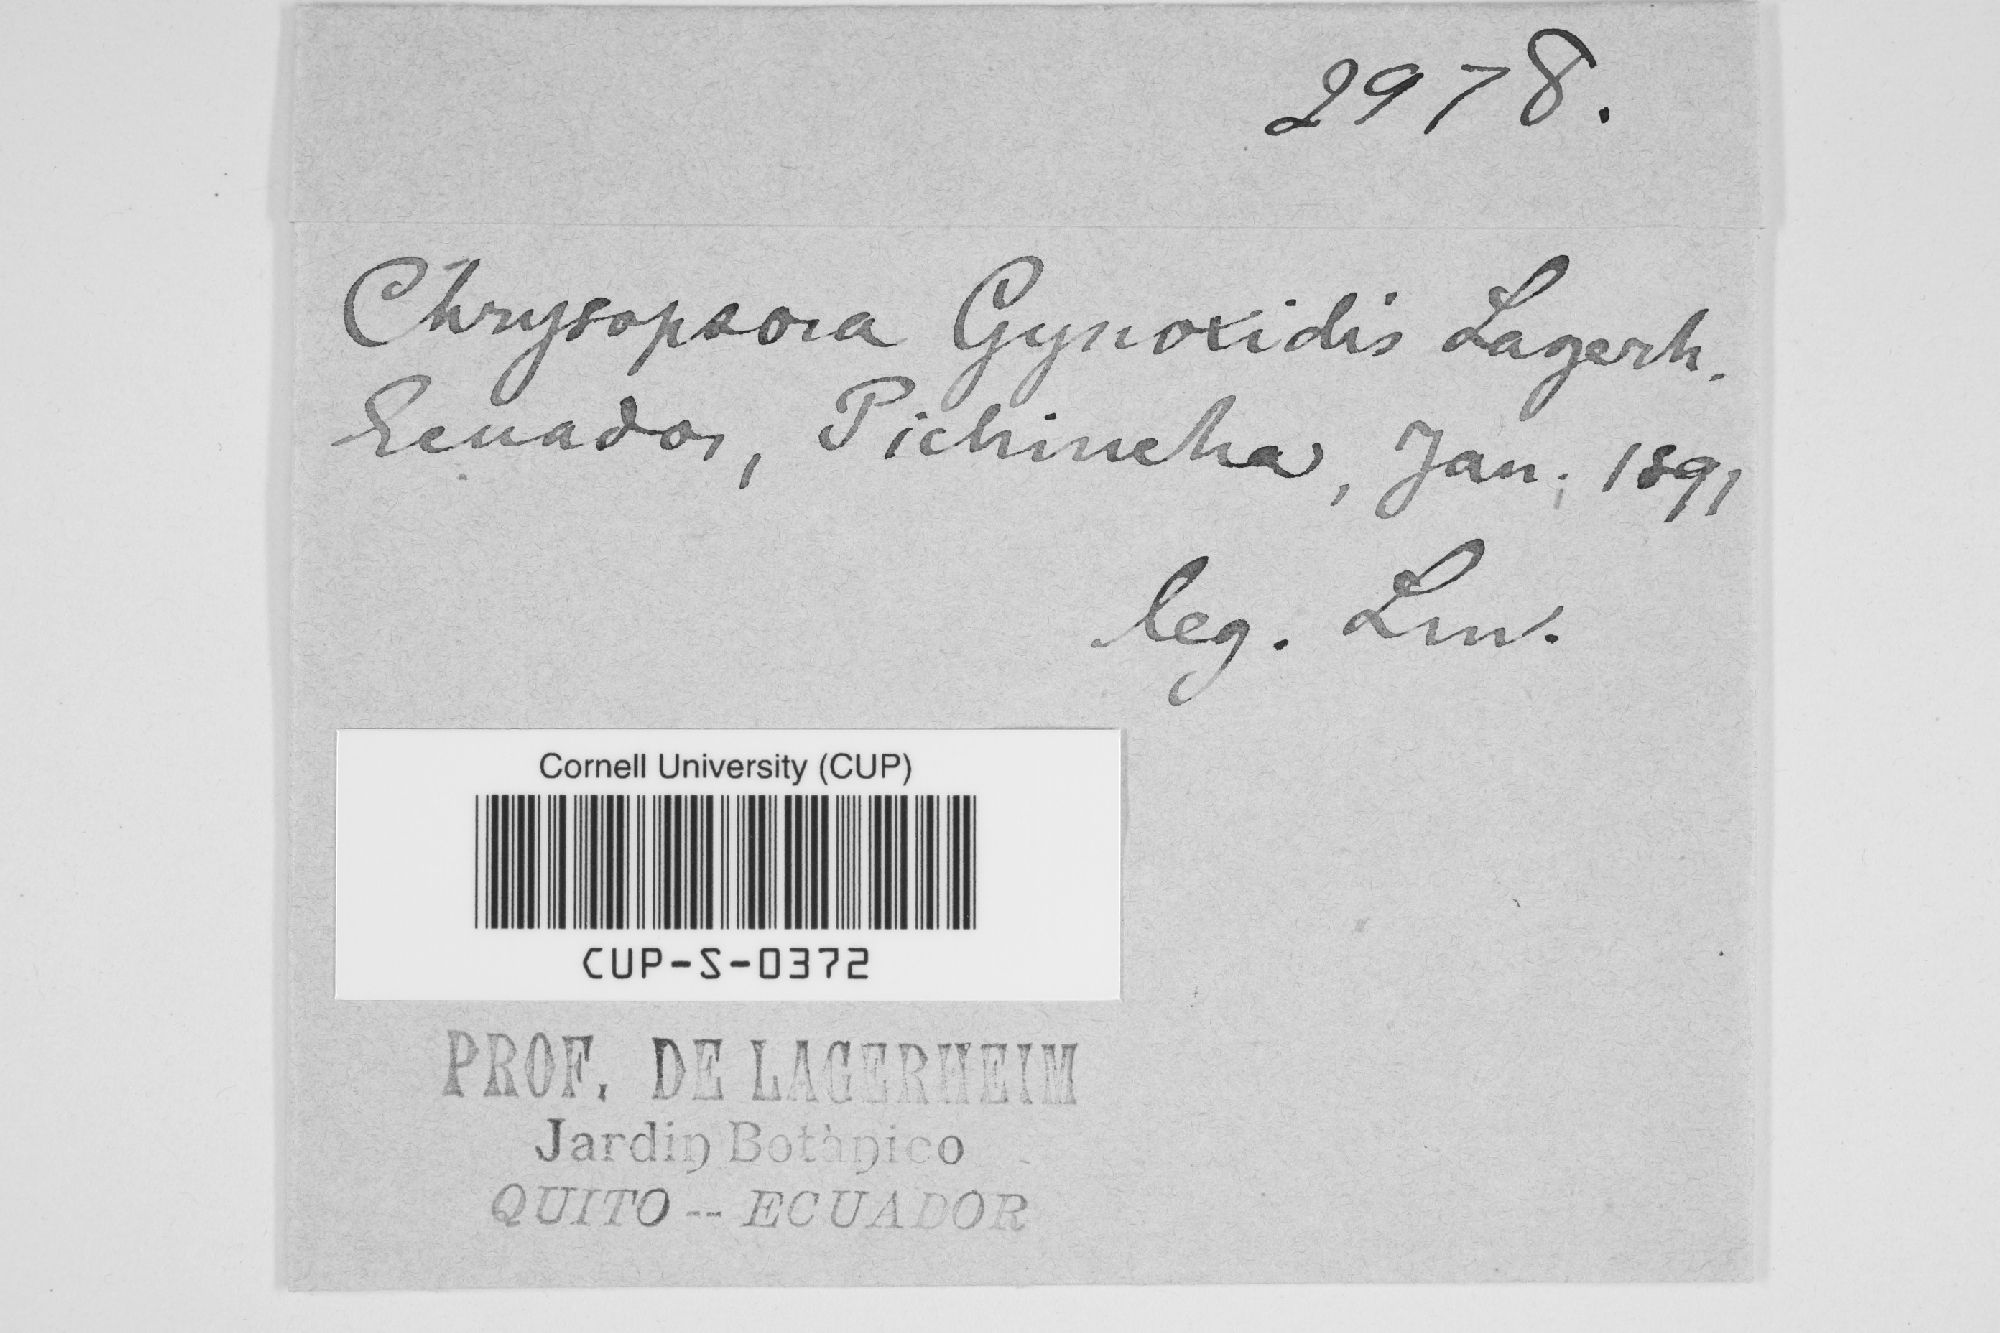 2978.
Chrysopsora Gynoxidis Lagerh.
Ecuador, Pichincha, Jan. 1891
leg.
Cornell University (CUP)
CUP-S-0372
PROF. DE LAGERHEIM
Jardin Botánico
QUITO -- ECUADOR